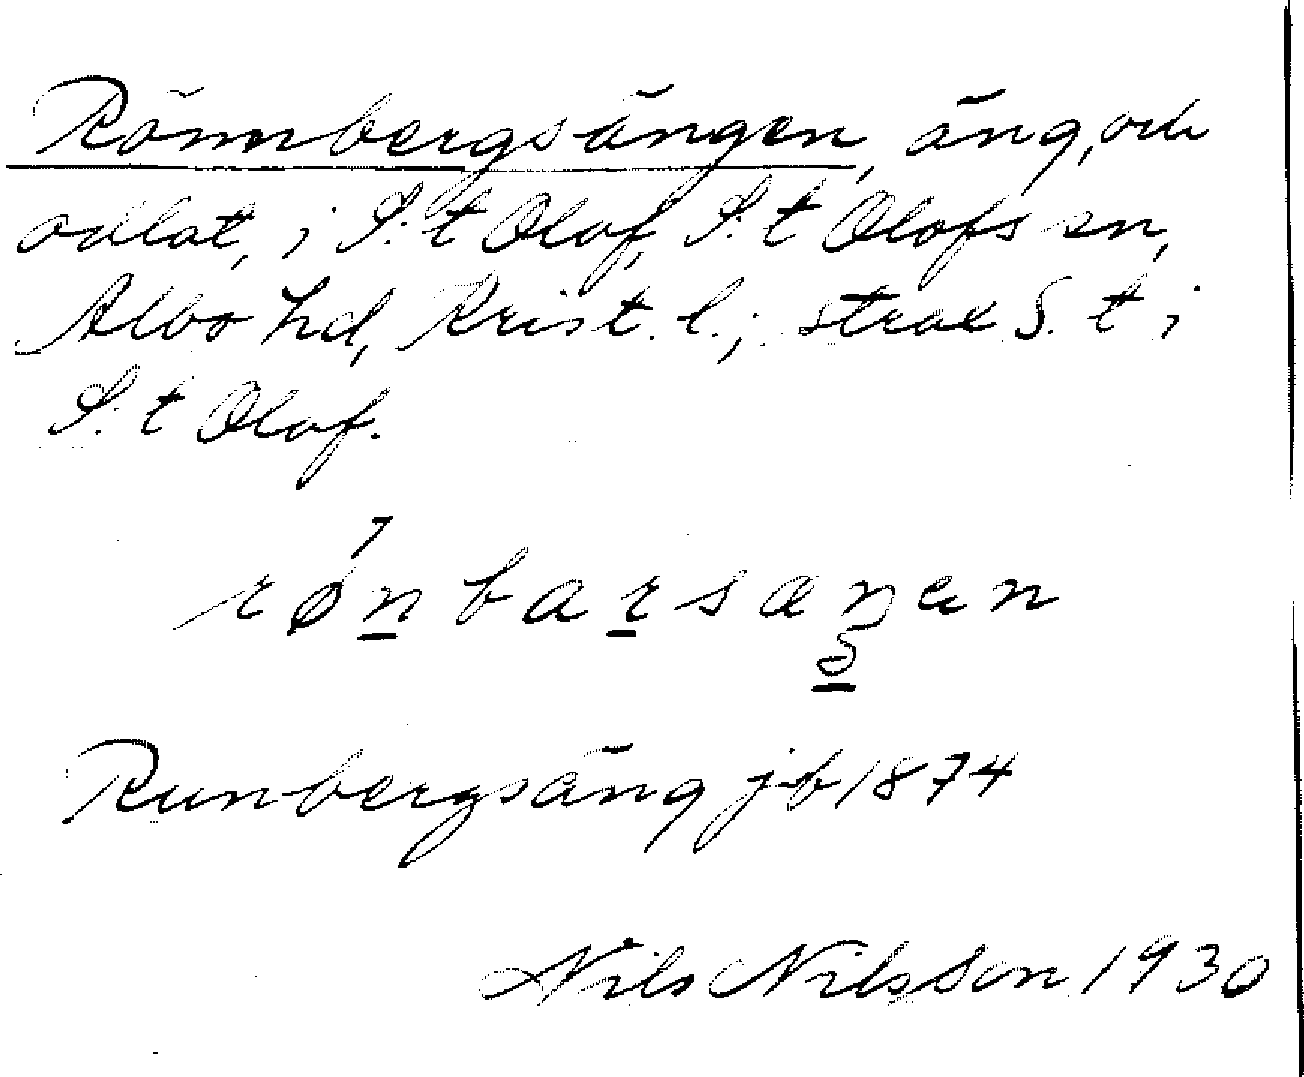 Rönnbergsängen, äng, och
odlat, i S:t Olof, S:t Olofs sn,
Albo hd, Krist. l.; strax S. t i
S:t Olof.
rønbarsæŋen
Runbergsäng jb 1874
Nils Nilsson 1930